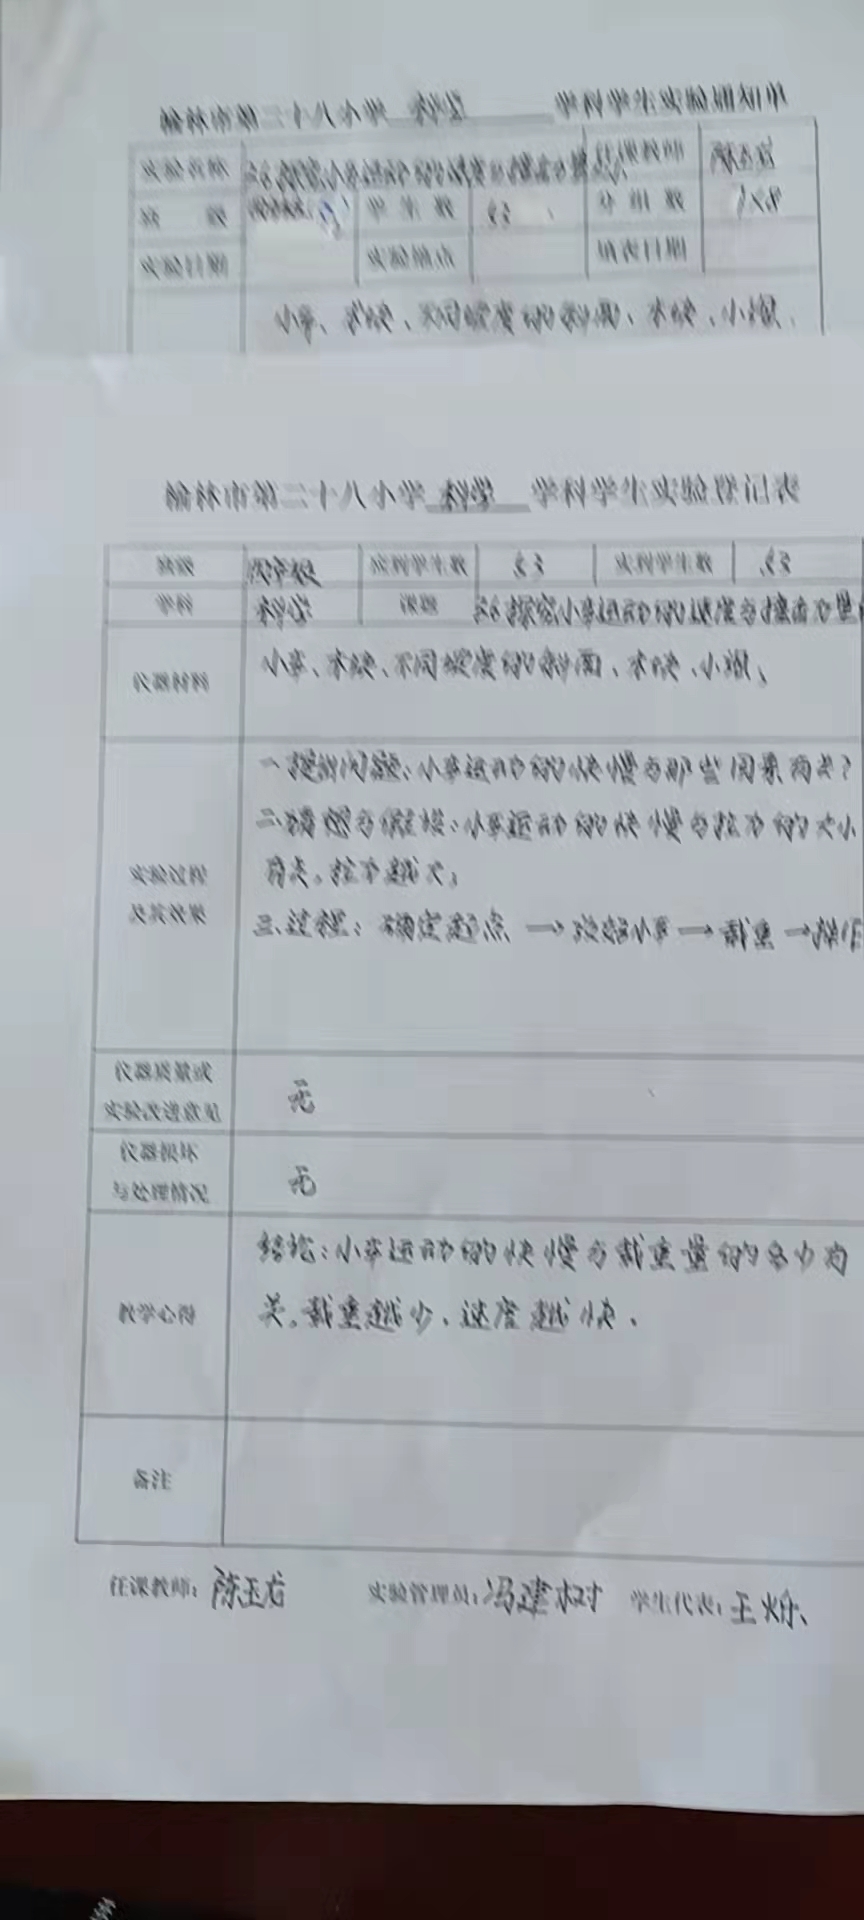 榆林市第二十八小学 科学 学科学生实验通知单
实验名称 小车运动的 任课教师 陈玉龙
班 级 学生数 53 分组数
实验日期 实验地点 填表日期
小车、木块、不同坡度的斜面、木块、小湖、
榆林市第二十八小学 科学 学科学生实验登记表
班级 四年级 应到学生数 53 实到学生数 53
学科 科学 课题 探究小车运动的
仪器材料 小车、木块、不同坡度的斜面、木块、小湖、
一提出问题:小车运动的快慢与那些因素有关?
二猜想与假设:小车运动的快慢与拉力的大小
实验过程 有关。拉力越大;
及其效果 三.过程:确定起点 → 小车 → 载重 → 操作
仪器质量或
实验改进意见 无
仪器损坏
与处理情况 无
结论:小车运动的快慢与载重量的多少有
教学心得 关。载重越少、速度越快.
备注
任课教师:陈玉龙 实验管理员:冯建树 学生代表:王烁、